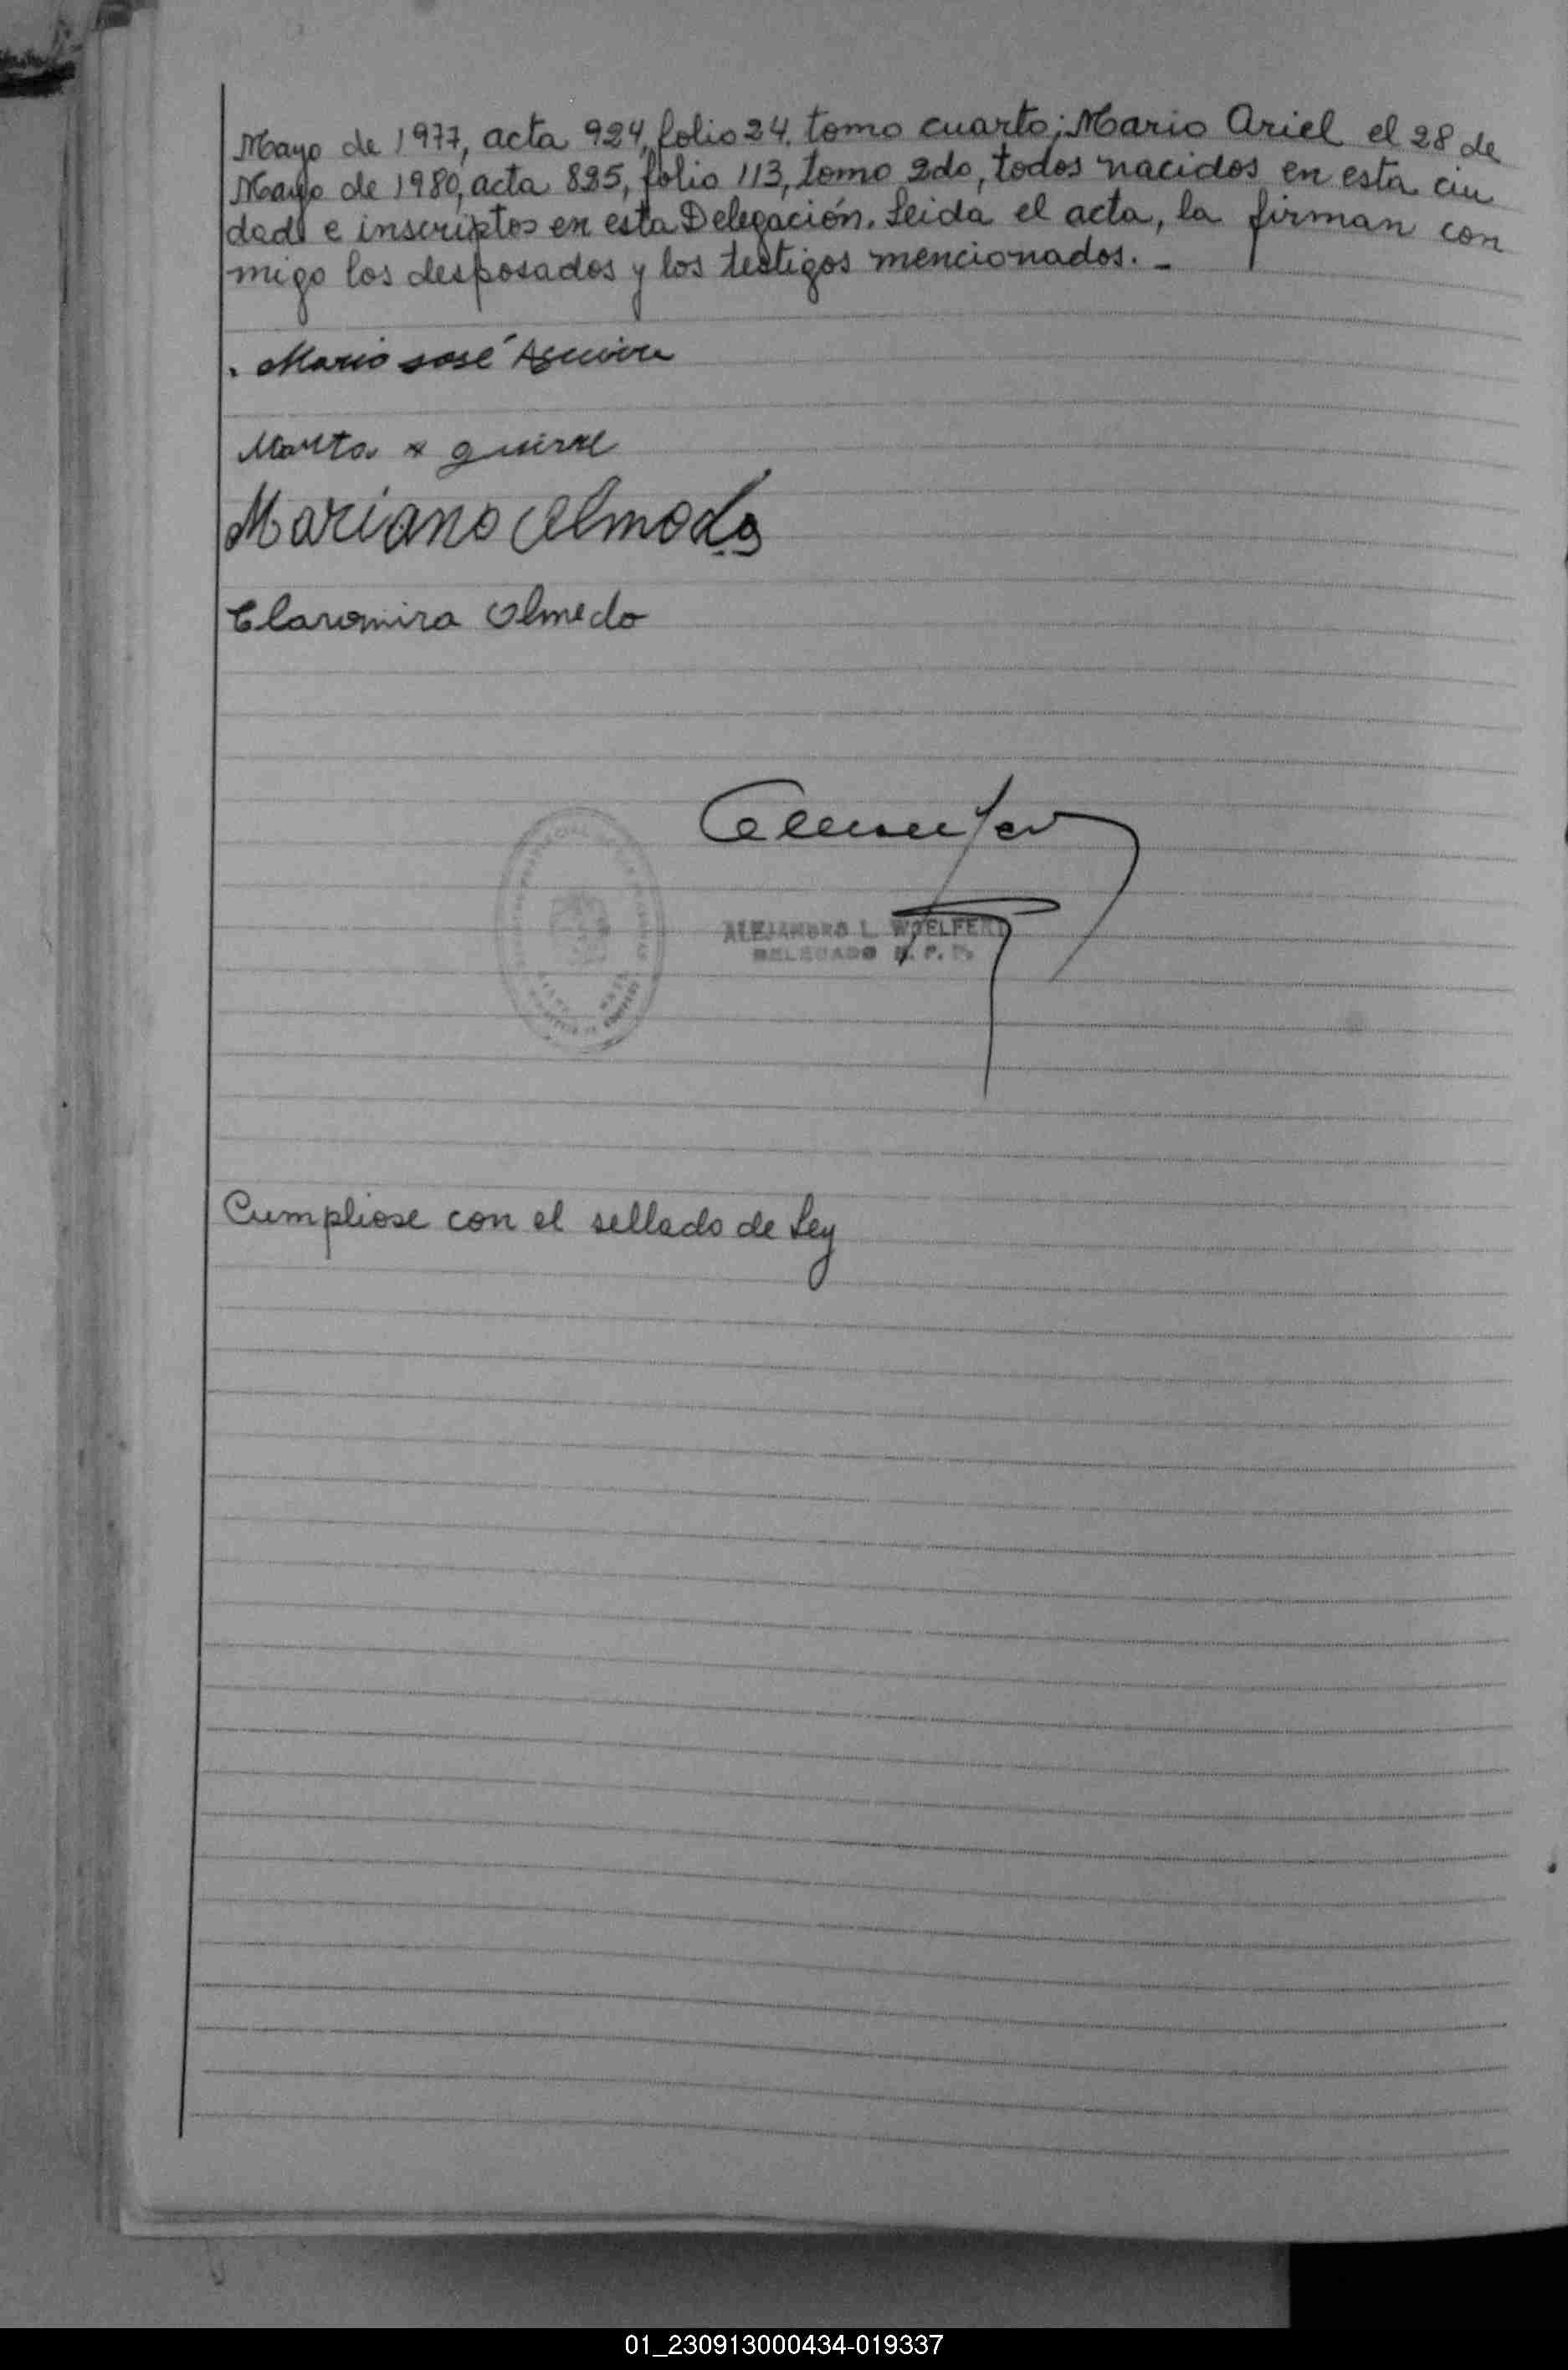 Mayo de 1977, acta 924, folio 24, tomo cuarto; Mario Ariel el 28 de
Mayo de 1980, acta 895, folio 113, tomo 2do, todos nacidos en esta ciu
dad e inscriptos en esta Delegación. Leida el acta, la firman con
migo los desposados y los testigos mencionados. -
Mario José Aguirre
Marta Aguirre
Mariano Olmedo
Claromira Olmedo
ALEJANDRO L. WOELFERT
DELEGADO R. P. P.
Cumpliose con el sellado de Ley
01_230913000434-019337